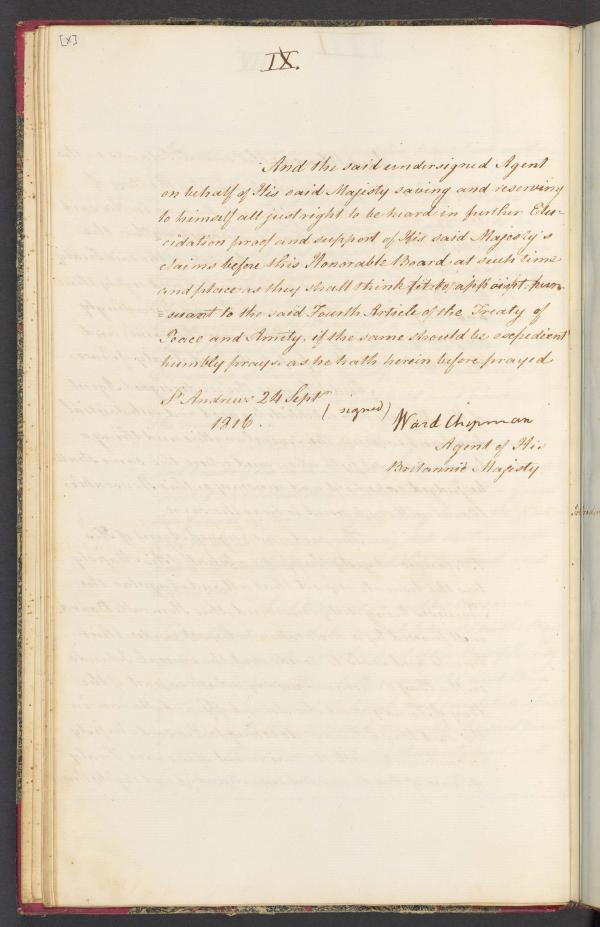 [x]
IX.
And the said undersigned Agent
on behalf of His said Majesty saving and reserving
to himself all just right to be heard in further Elu-
cidation proof and support of His said Majesty's
claims before this Honorable Board at such time
and place as they shall think fit to appoint pur-
=suant to the said Fourth Article of the Treaty of
Peace and Amity, if the same should be expedient
humbly prays as he hath herein before prayed
St Andrews 24 Septr
1816.
(signed) Ward Chipman
Agent of His
Britannic Majesty